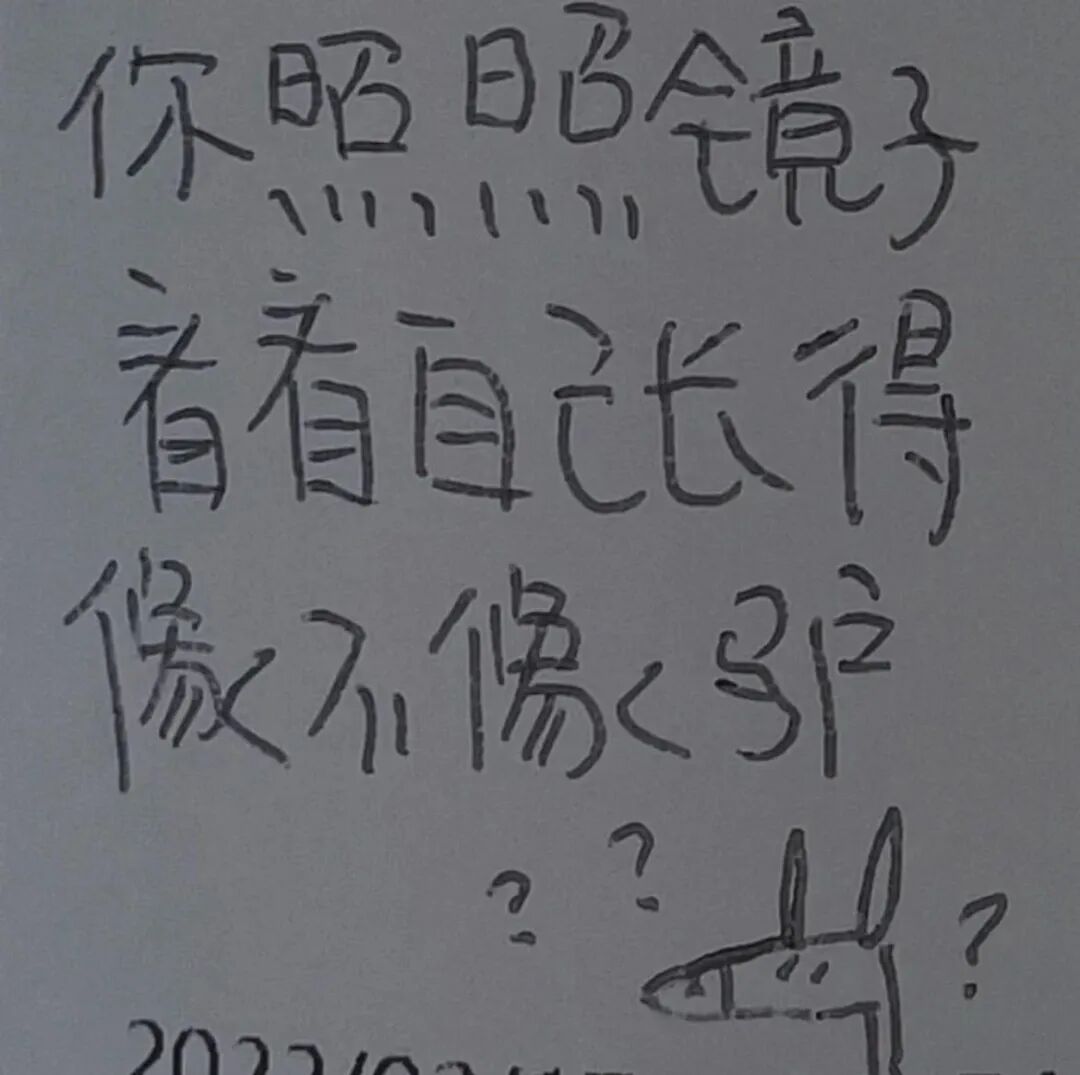 你照照镜子
看看自己长得
像不像驴
? ? ?